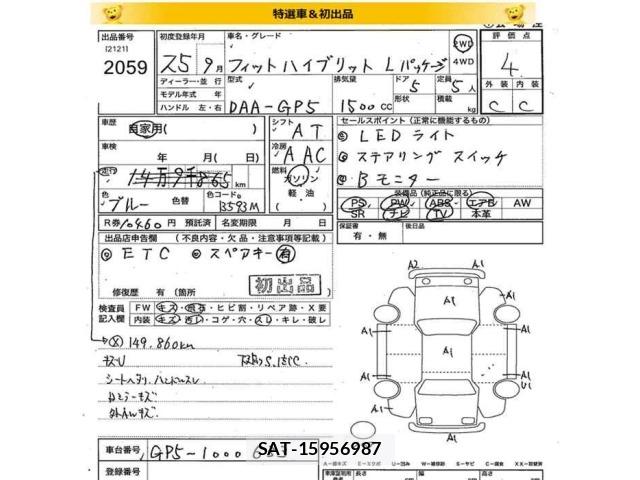 特選車＆初出品
出品番号
[2121]
2059
初度登録年月
25 9月
ディーラー・並 行
モデル年式 年
ハンドル 左・右
車名・グレード
フィットハイブリット Lパッケージ
2WD
4WD
型式
DAA-GP5
排気量
1500 CC
ドア 5
形状
定員 5 人
積載 kg
評価点
4
外装 内装
C C
車歴
自家用( )
車検
年 月( 日)
走行
149865 km
色
ブルー
色替
色コードNo
B593M
シフト
AT
冷房
AAC
燃料
ガソリン
軽・油
( )
セールスポイント (正常に機能するもの)
LEDライト
ステアリングスイッチ
Bモニター
装備品 (純正品に限る)
PS PW ABS エアB AW
SR ナビ TV 本革
保証書
有・無
後日品
R券 10460 円 預託済
名変期限 月 日
出品店申告欄 ( 不良内容・欠品・注意事項等記載 )
ETC
スペアキー 有
初出品
修復歴 有 (箇所 )
検査員
記入欄
FW キズ・飛石・ヒビ割・リペア跡・X要
内装 キズ・汚レ・コゲ・穴・スレ・キレ・破レ
149,860km
キズU
シートヘタリ、ハンドルスレ
外AWキズ
A2 A1
A1
A1 A1
A1
A1 A1
U1
A1
A1
車台番号
GP5-1000
SAT-15956987
登録番号
A＝線キズ E＝エクボ U＝凹み W＝補修跡 S＝サビ C＝腐食 XX＝取替済